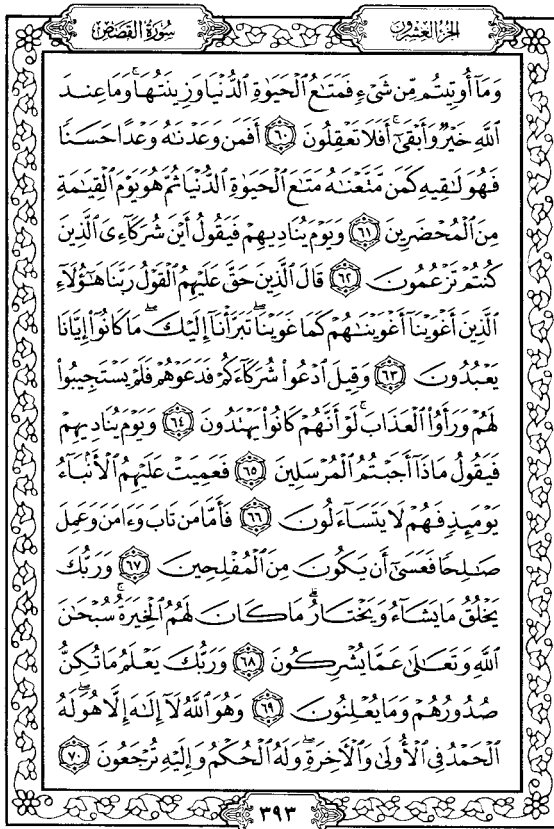 سُورَةُ القَصَصِ
الجُزْءُ العِشْرُونَ
وَمَآ أُوتِيتُم مِّن شَىْءٍ فَمَتَـٰعُ ٱلْحَيَوٰةِ ٱلدُّنْيَا وَزِينَتُهَا ۚ وَمَا عِندَ
ٱللَّهِ خَيْرٌ وَأَبْقَىٰٓ ۚ أَفَلَا تَعْقِلُونَ ۝٦٠ أَفَمَن وَعَدْنَـٰهُ وَعْدًا حَسَنًا
فَهُوَ لَـٰقِيهِ كَمَن مَّتَّعْنَـٰهُ مَتَـٰعَ ٱلْحَيَوٰةِ ٱلدُّنْيَا ثُمَّ هُوَ يَوْمَ ٱلْقِيَـٰمَةِ
مِنَ ٱلْمُحْضَرِينَ ۝٦١ وَيَوْمَ يُنَادِيهِمْ فَيَقُولُ أَيْنَ شُرَكَآءِىَ ٱلَّذِينَ
كُنتُمْ تَزْعُمُونَ ۝٦٢ قَالَ ٱلَّذِينَ حَقَّ عَلَيْهِمُ ٱلْقَوْلُ رَبَّنَا هَـٰٓؤُلَآءِ
ٱلَّذِينَ أَغْوَيْنَآ أَغْوَيْنَـٰهُمْ كَمَا غَوَيْنَا ۖ تَبَرَّأْنَآ إِلَيْكَ ۖ مَا كَانُوٓا۟ إِيَّانَا
يَعْبُدُونَ ۝٦٣ وَقِيلَ ٱدْعُوا۟ شُرَكَآءَكُمْ فَدَعَوْهُمْ فَلَمْ يَسْتَجِيبُوا۟
لَهُمْ وَرَأَوُا۟ ٱلْعَذَابَ ۚ لَوْ أَنَّهُمْ كَانُوا۟ يَهْتَدُونَ ۝٦٤ وَيَوْمَ يُنَادِيهِمْ
فَيَقُولُ مَاذَآ أَجَبْتُمُ ٱلْمُرْسَلِينَ ۝٦٥ فَعَمِيَتْ عَلَيْهِمُ ٱلْأَنۢبَآءُ
يَوْمَئِذٍ فَهُمْ لَا يَتَسَآءَلُونَ ۝٦٦ فَأَمَّا مَن تَابَ وَءَامَنَ وَعَمِلَ
صَـٰلِحًا فَعَسَىٰٓ أَن يَكُونَ مِنَ ٱلْمُفْلِحِينَ ۝٦٧ وَرَبُّكَ
يَخْلُقُ مَا يَشَآءُ وَيَخْتَارُ ۗ مَا كَانَ لَهُمُ ٱلْخِيَرَةُ ۚ سُبْحَـٰنَ
ٱللَّهِ وَتَعَـٰلَىٰ عَمَّا يُشْرِكُونَ ۝٦٨ وَرَبُّكَ يَعْلَمُ مَا تُكِنُّ
صُدُورُهُمْ وَمَا يُعْلِنُونَ ۝٦٩ وَهُوَ ٱللَّهُ لَآ إِلَـٰهَ إِلَّا هُوَ ۖ لَهُ
ٱلْحَمْدُ فِى ٱلْأُولَىٰ وَٱلْـَٔاخِرَةِ ۖ وَلَهُ ٱلْحُكْمُ وَإِلَيْهِ تُرْجَعُونَ ۝٧٠
٣٩٣